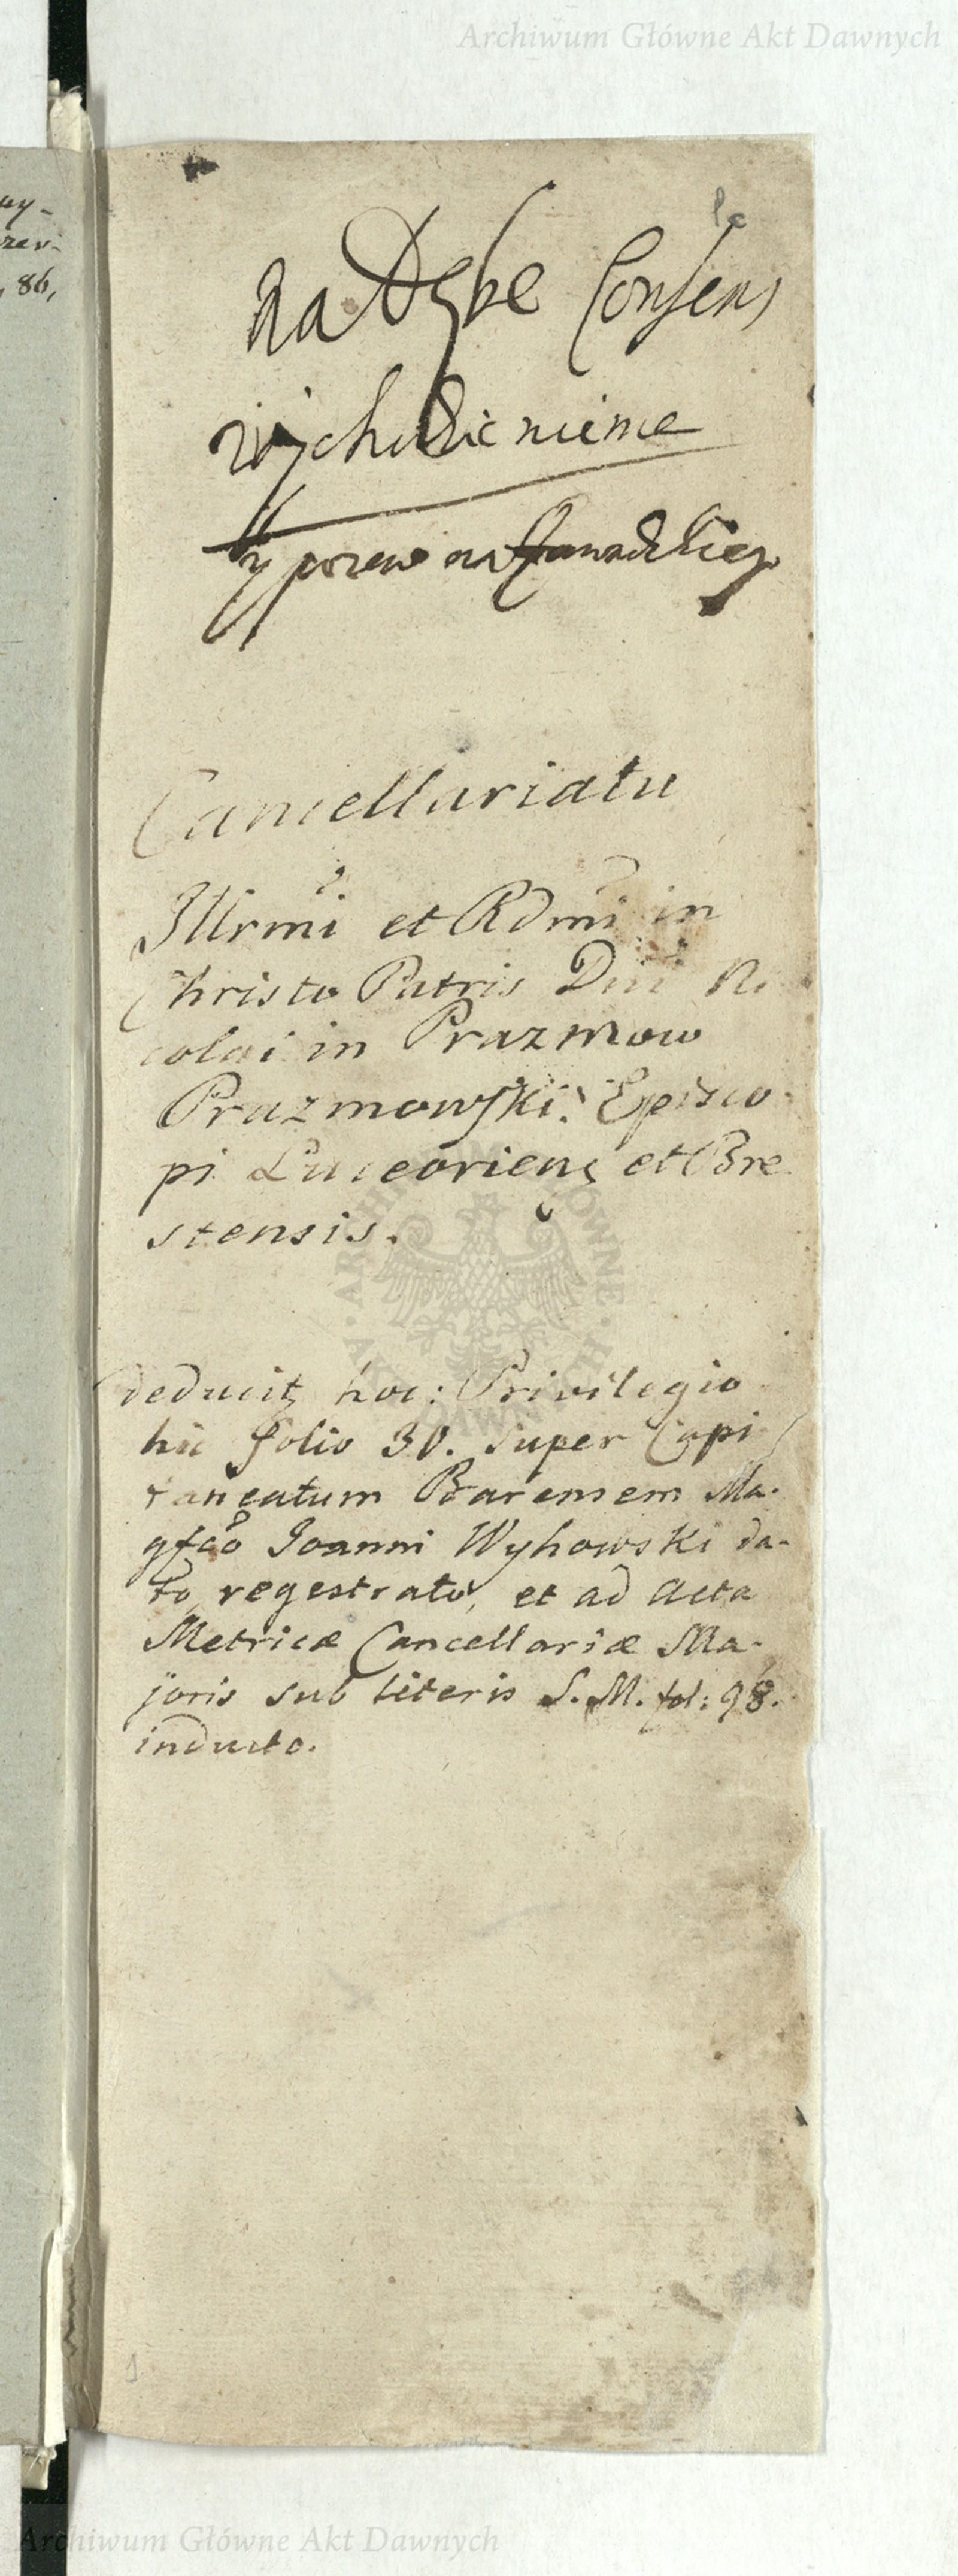 Archiwum Główne Akt Dawnych
ay-
zew-
, 86,
na Dębe Consens
wychodzic nieme
y pozew na Zawadzkieg
Cancellariatu
Illrmi et Rdmi in
Christo Patris Dni Ni
colai in Prazmow
Prazmowski. Episco-
pi Luceoriens et Bre
stensis.
deducitz hoc: Privilegio
hic folio 30. super Capi
taneatum Baremsem Ma-
gfco Joanni Wyhowski da-
to, regestrato, et ad Acta
Metricæ Cancellariæ Ma-
joris sub literis S. M. fol: 98.
inducto.
1
Archiwum Główne Akt Dawnych